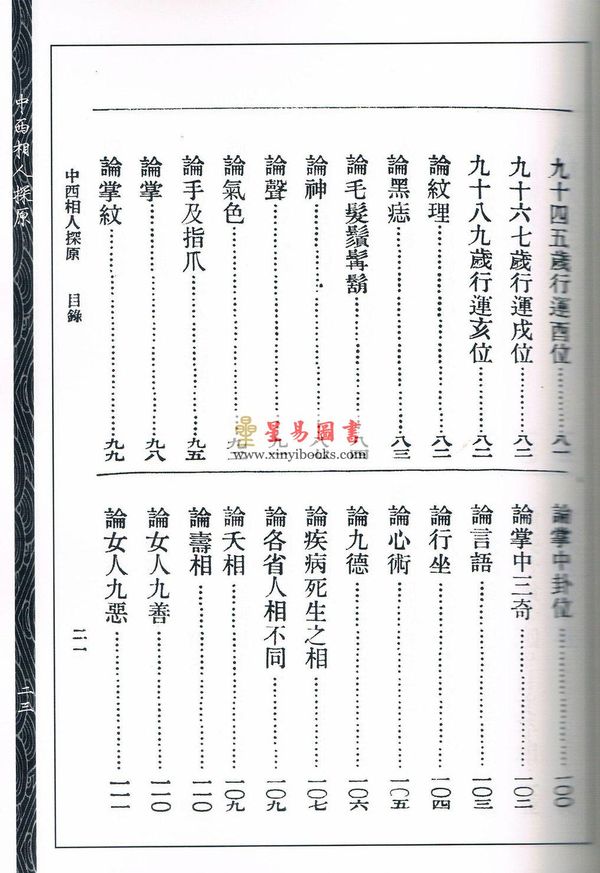 九十四五歲行運酉位……八一
九十六七歲行運戌位……八二
九十八九歲行運亥位……八二
論紋理……八二
論黑痣……八三
論毛髮鬚髯鬍……八
論神……八
論聲……九
論氣色……九
論手及指爪……九五
論掌……九八
論掌紋……九九
論掌中卦位……一〇〇
論掌中三奇……一〇二
論言語……一〇三
論行坐……一〇四
論心術……一〇五
論九德……一〇六
論疾病死生之相……一〇七
論各省人相不同……一〇九
論夭相……一〇九
論壽相……一一〇
論女人九善……一一〇
論女人九惡……一一一
中西相人探原 目錄
二一
中西相人探原
二三
星易圖書
www.xinyibooks.com